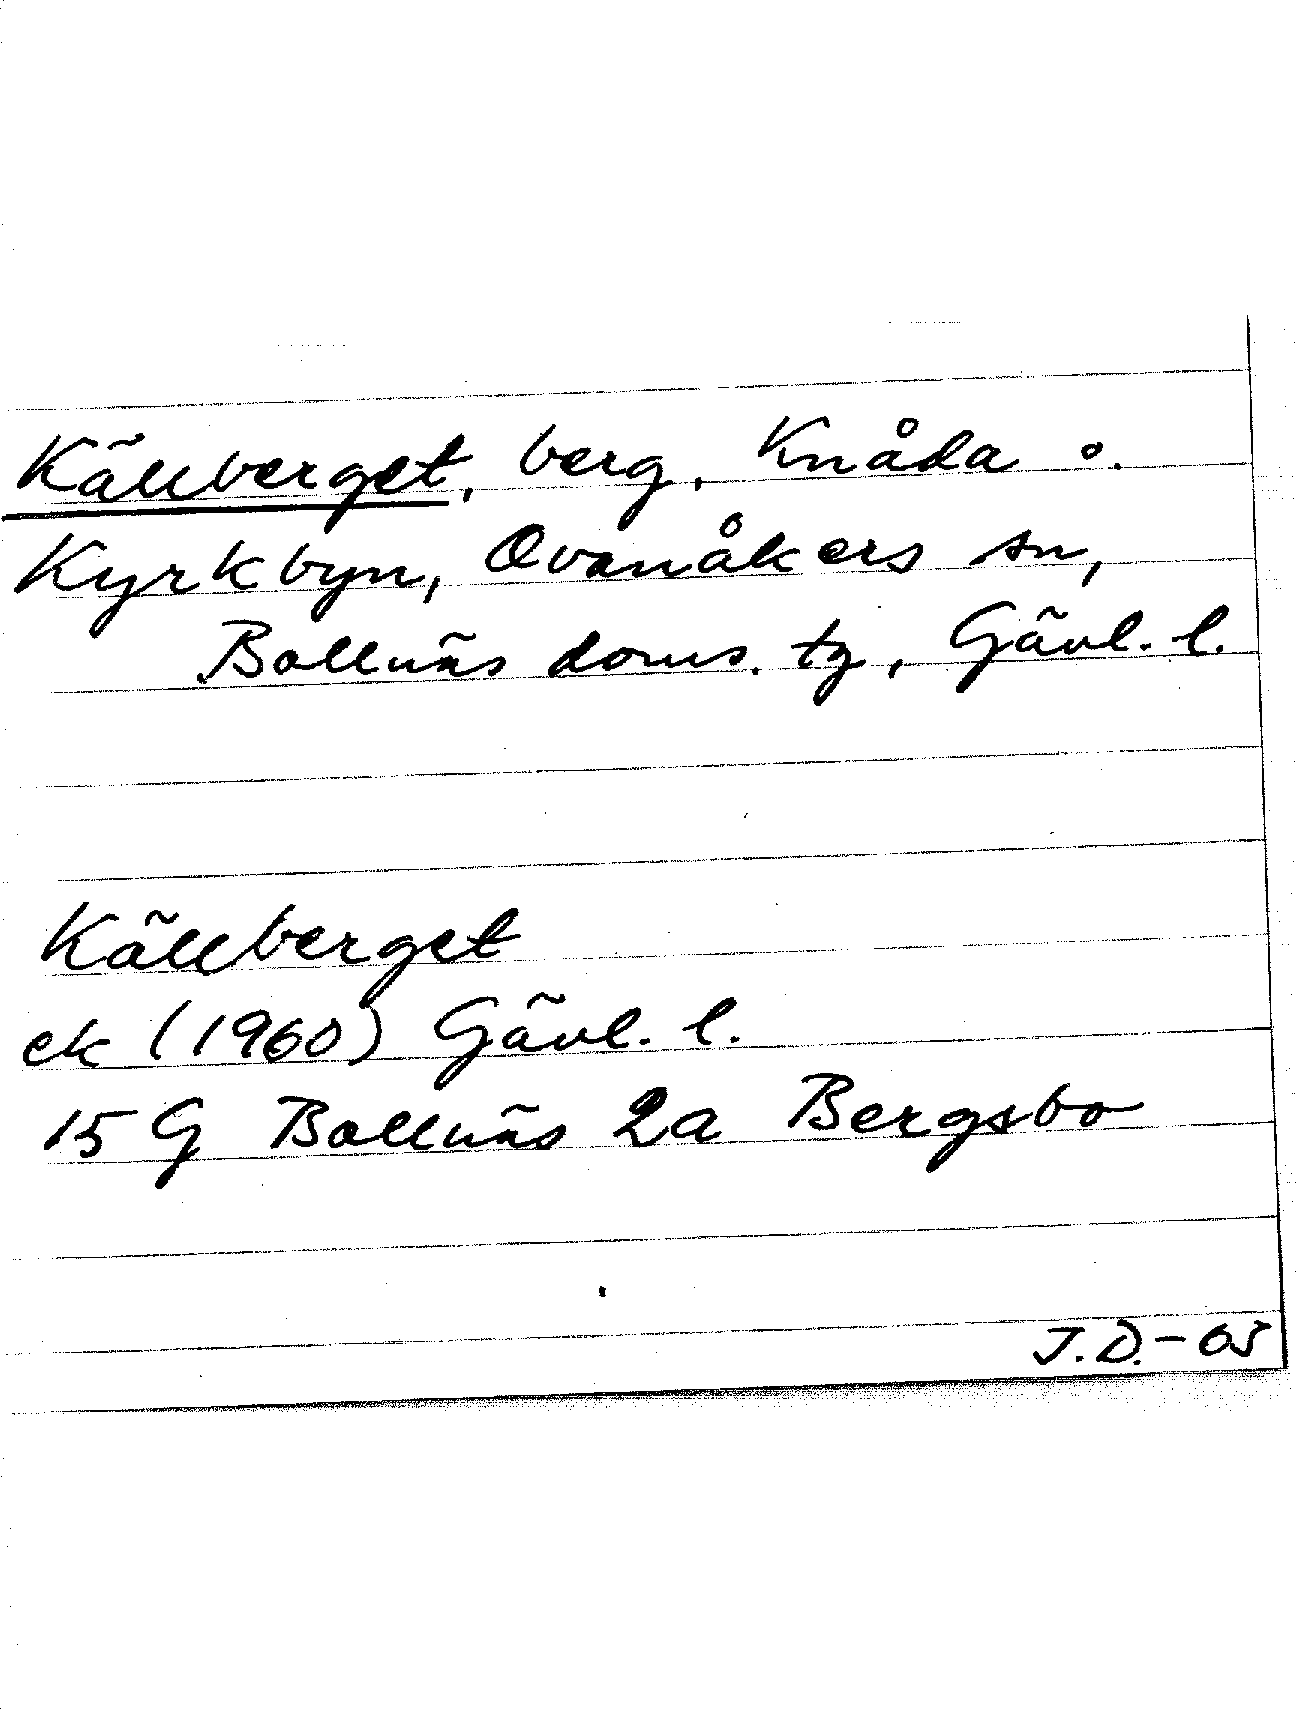 Källberget, berg, Knåda o.
Kyrkbyn, Ovanåkers sn,
Bollnäs doms. tg, Gävl. l.
Källberget
ek (1960) Gävl. l.
15 G Bollnäs 2a Bergsbo
J.D.-65